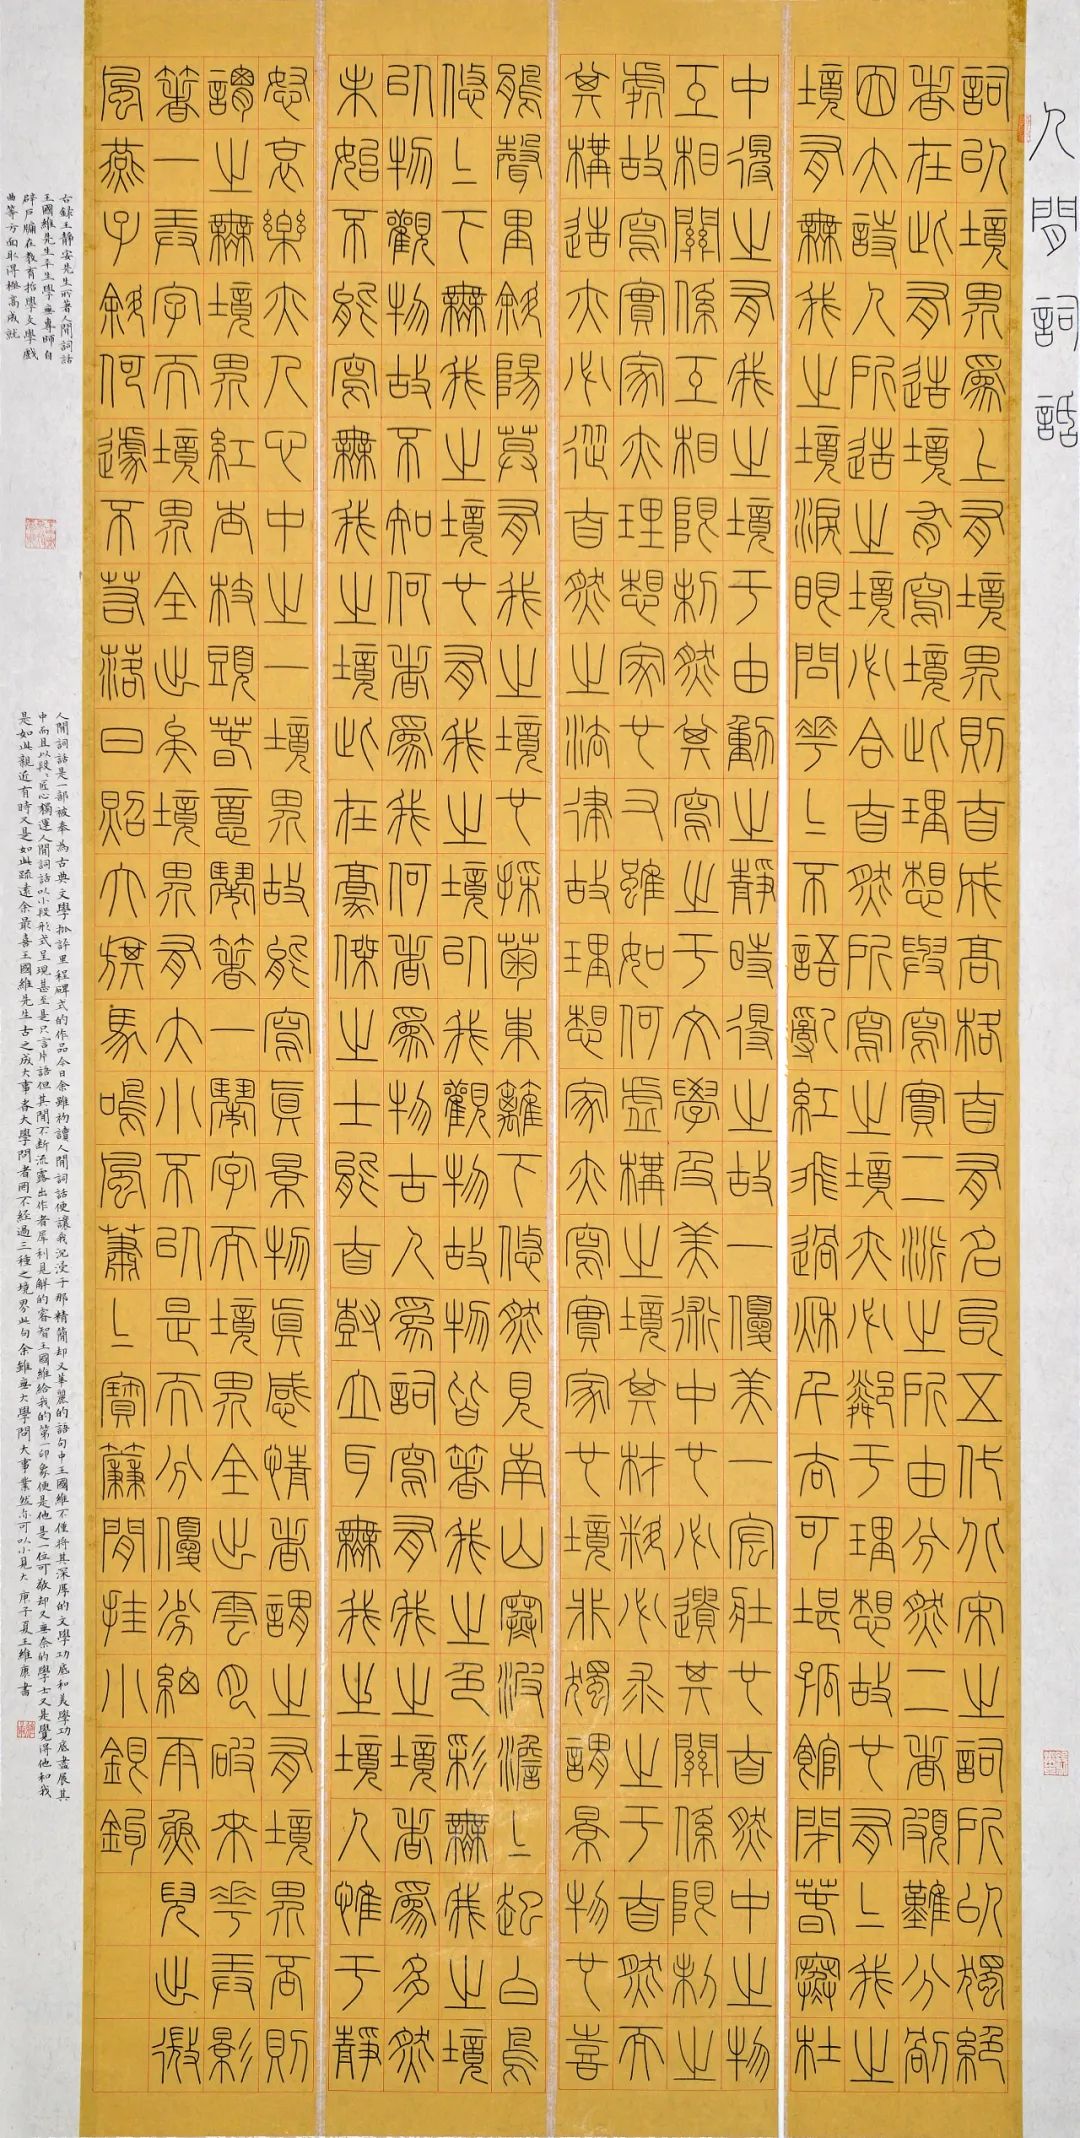 人間詞話
詞以境界爲上有境界則自成高格自有名句五代北宋之詞所以獨絕
者在此有造境有寫境此理想與寫實二派之所由分然二者頗難分別
因大詩人所造之境必合自然所寫之境亦必鄰于理想故也有々我之
境有無我之境淚眼問花々不語亂紅飛過秋千去可堪孤館閉春寒杜
中得之有我之境于由動之靜時得之故優美一宏壯也自然中之物
互相關係互相限制然其寫之于文學及美術中也必遺其關係限制之
處故寫實家亦理想家也又雖如何虛構之境其材料必求之于自然而
其構造亦必從自然之法律故理想家亦寫實家也境非獨謂景物也喜
鵑聲里斜陽暮有我之境也採菊東籬下悠然見南山寒波澹々起白鳥
悠々下無我之境也有我之境以我觀物故物皆著我之色彩無我之境
以物觀物故不知何者爲我何者爲物古人爲詞寫有我之境者爲多然
未始不能寫無我之境此在豪傑之士能自樹立耳無我之境人惟于靜
怒哀樂亦人心中之一境界故能寫真景物真感情者謂之有境界否則
謂之無境界紅杏枝頭春意鬧著一鬧字而境界全出雲破月來花弄影
著一弄字而境界全出矣境界有大小不以是而分優劣細雨魚兒出微
風燕子斜何遽不若落日照大旗馬鳴風蕭々寶簾閒挂小銀鉤
右錄王靜安先生所著人間詞話
王國維先生平生學無專師自
辟戶牖在教育哲學文學戲
曲等方面取得極高成就
人間詞話是一部被奉為古典文學批評里程碑式的作品今日余雖初讀人間詞話便讓我沉浸于那精簡却又華麗的語句中王國維不僅將其深厚的文學功底和美學功底盡展其
中而且以段々匠心獨運人間詞話以小段形式呈現甚至是只言片語但其間不斷流露出作者犀利見解的睿智王國維給我的第一印象便是他是一位可敬却又無奈的學士又是覺得他和我
是如此親近有時又是如此疏遠余最喜王國維先生古之成大事者大學問者罔不經過三種之境界此句余雖無大學問大事業然亦可以小見大庚子夏王維康書